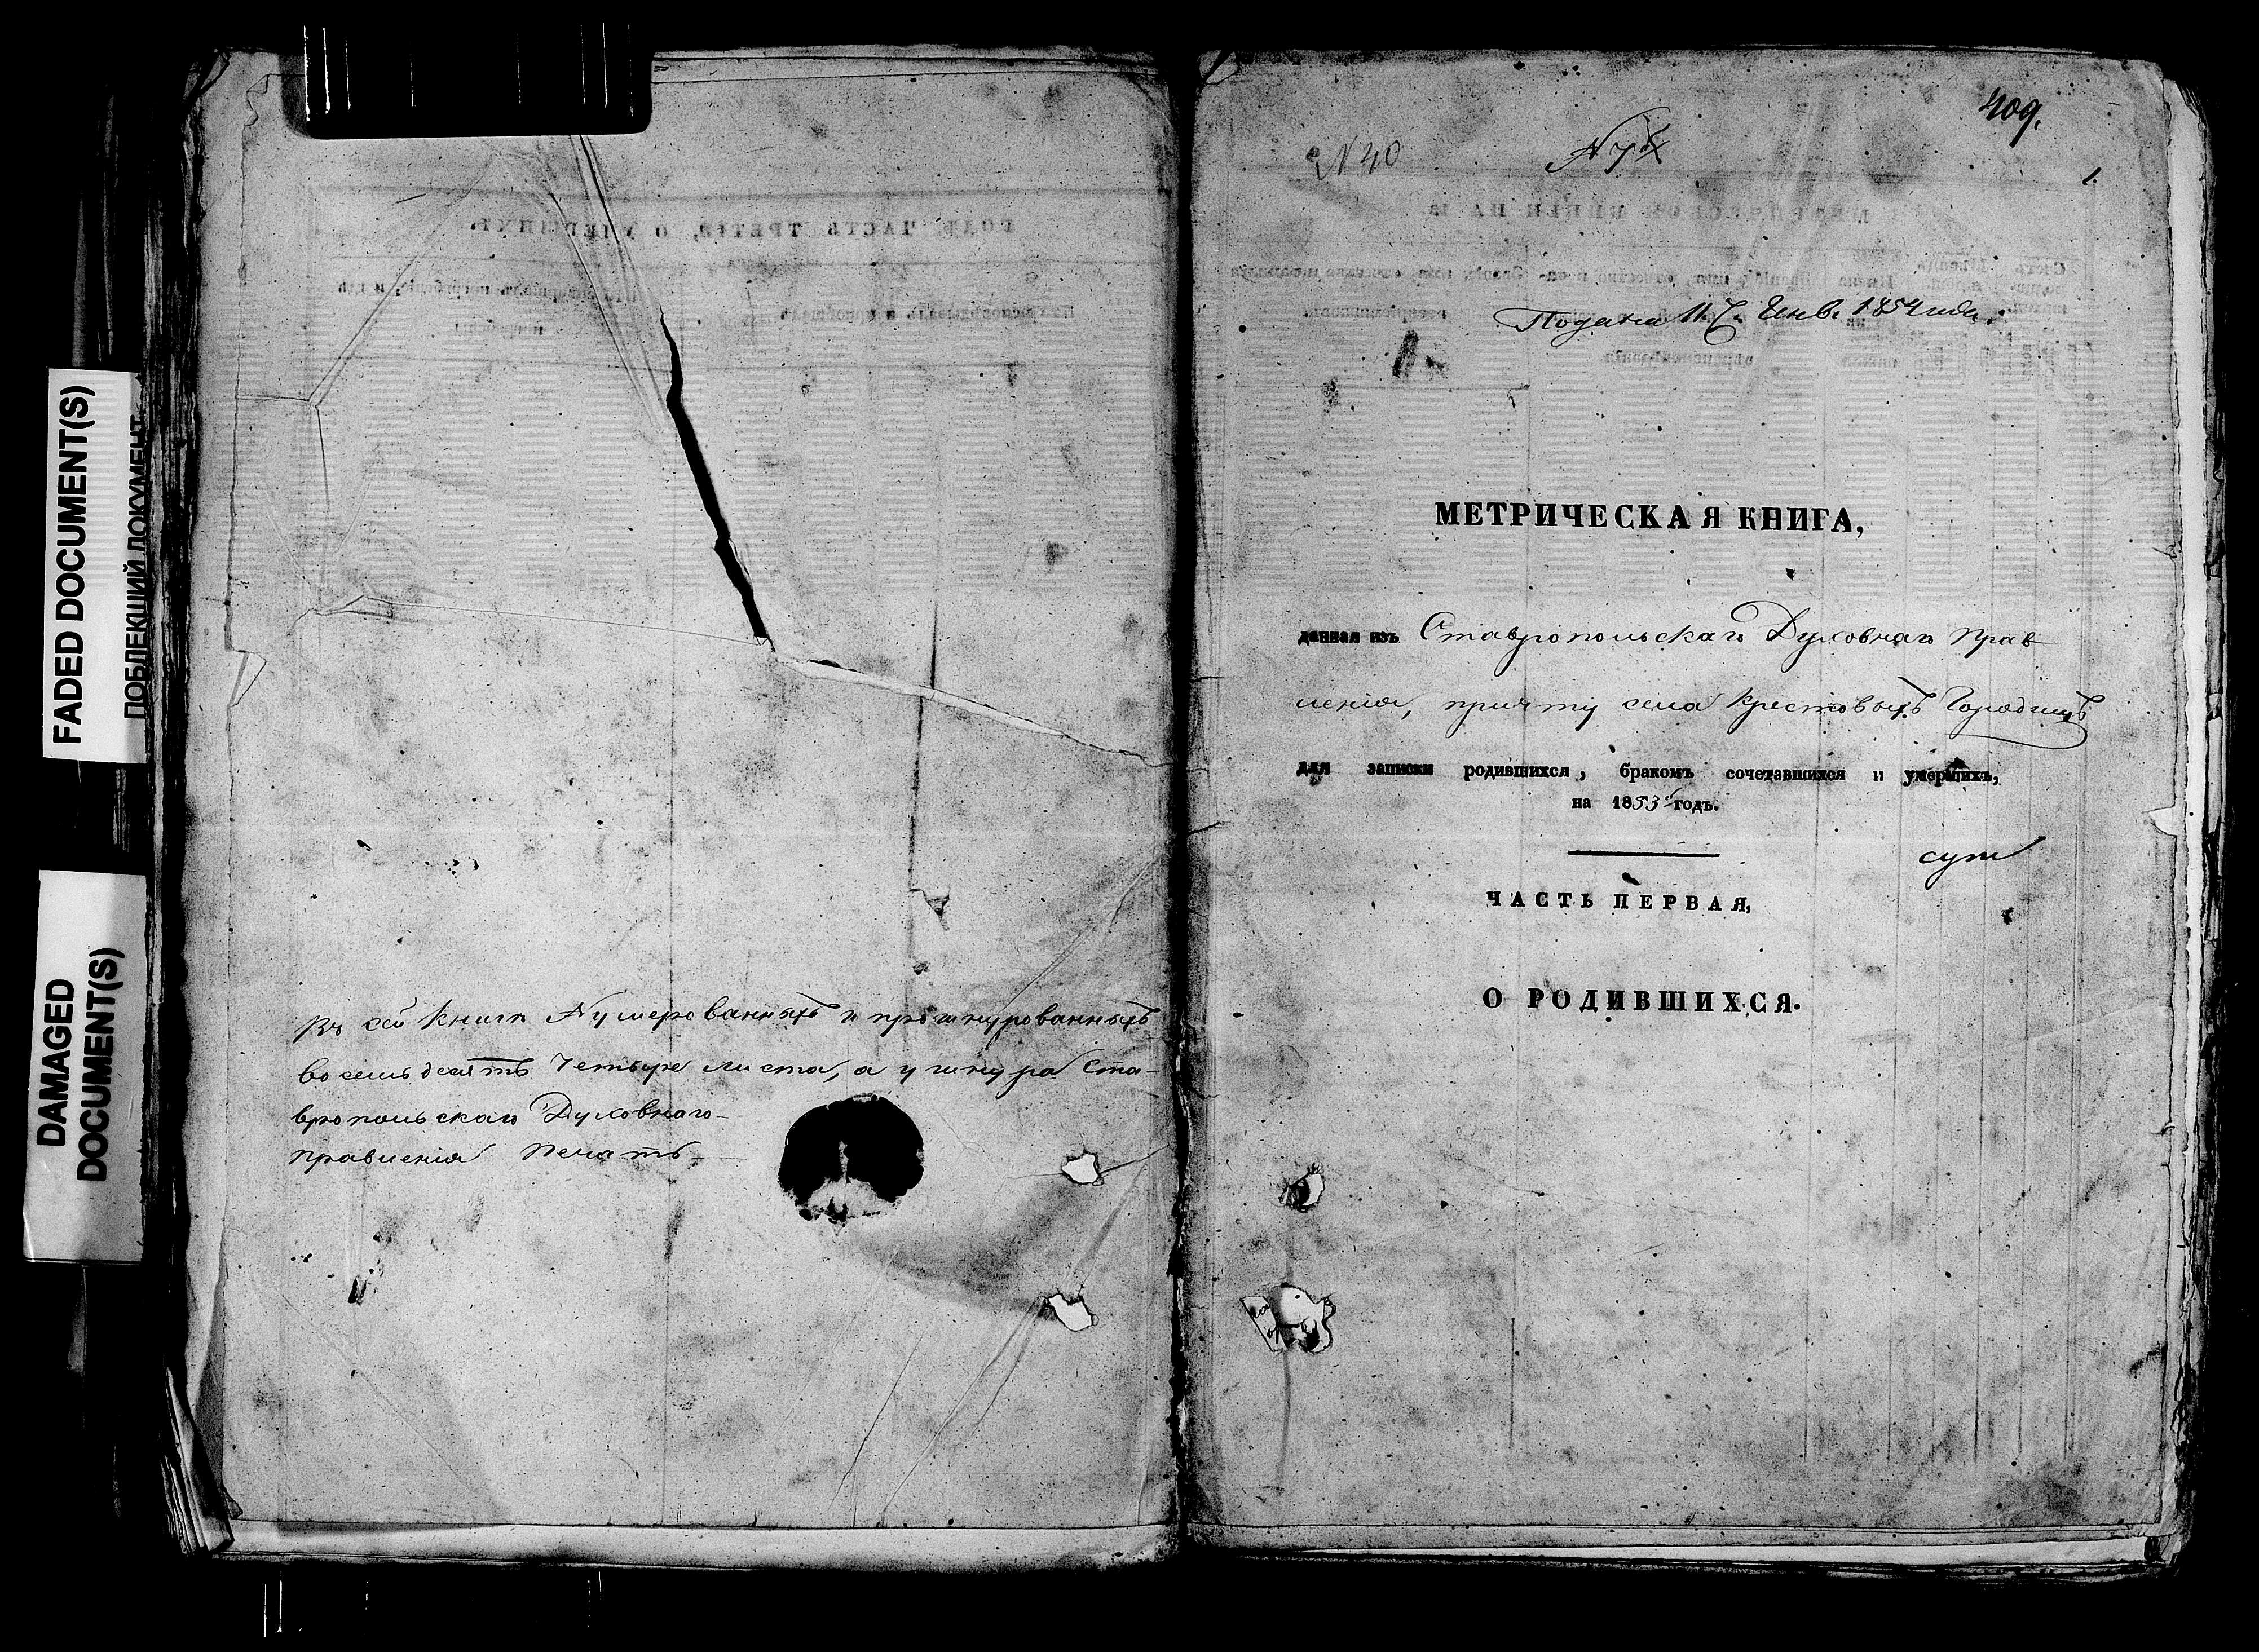 FADED DOCUMENT(S)
ПОБЛЕКШИЙ ДОКУМЕНТ
DAMAGED
DOCUMENT(S)
Въ сей книгѣ Нумерованныхъ и прошнурованныхъ
восемьдесятъ Четыре листа, а у шнура Ста-
вропольскаго Духовнаго
правленія печать
409.
N 40
1.
Подана 11.
1854 года.
МЕТРИЧЕСКАЯ КНИГА,
данная изъ Ставропольскаго Духовнаго Прав
ленія, причту села Крестовыхъ Городищъ
для записки родившихся, бракомъ сочетавшихся и умершихъ,
на 1853 годъ.
ЧАСТЬ ПЕРВАЯ,
О РОДИВШИХСЯ.